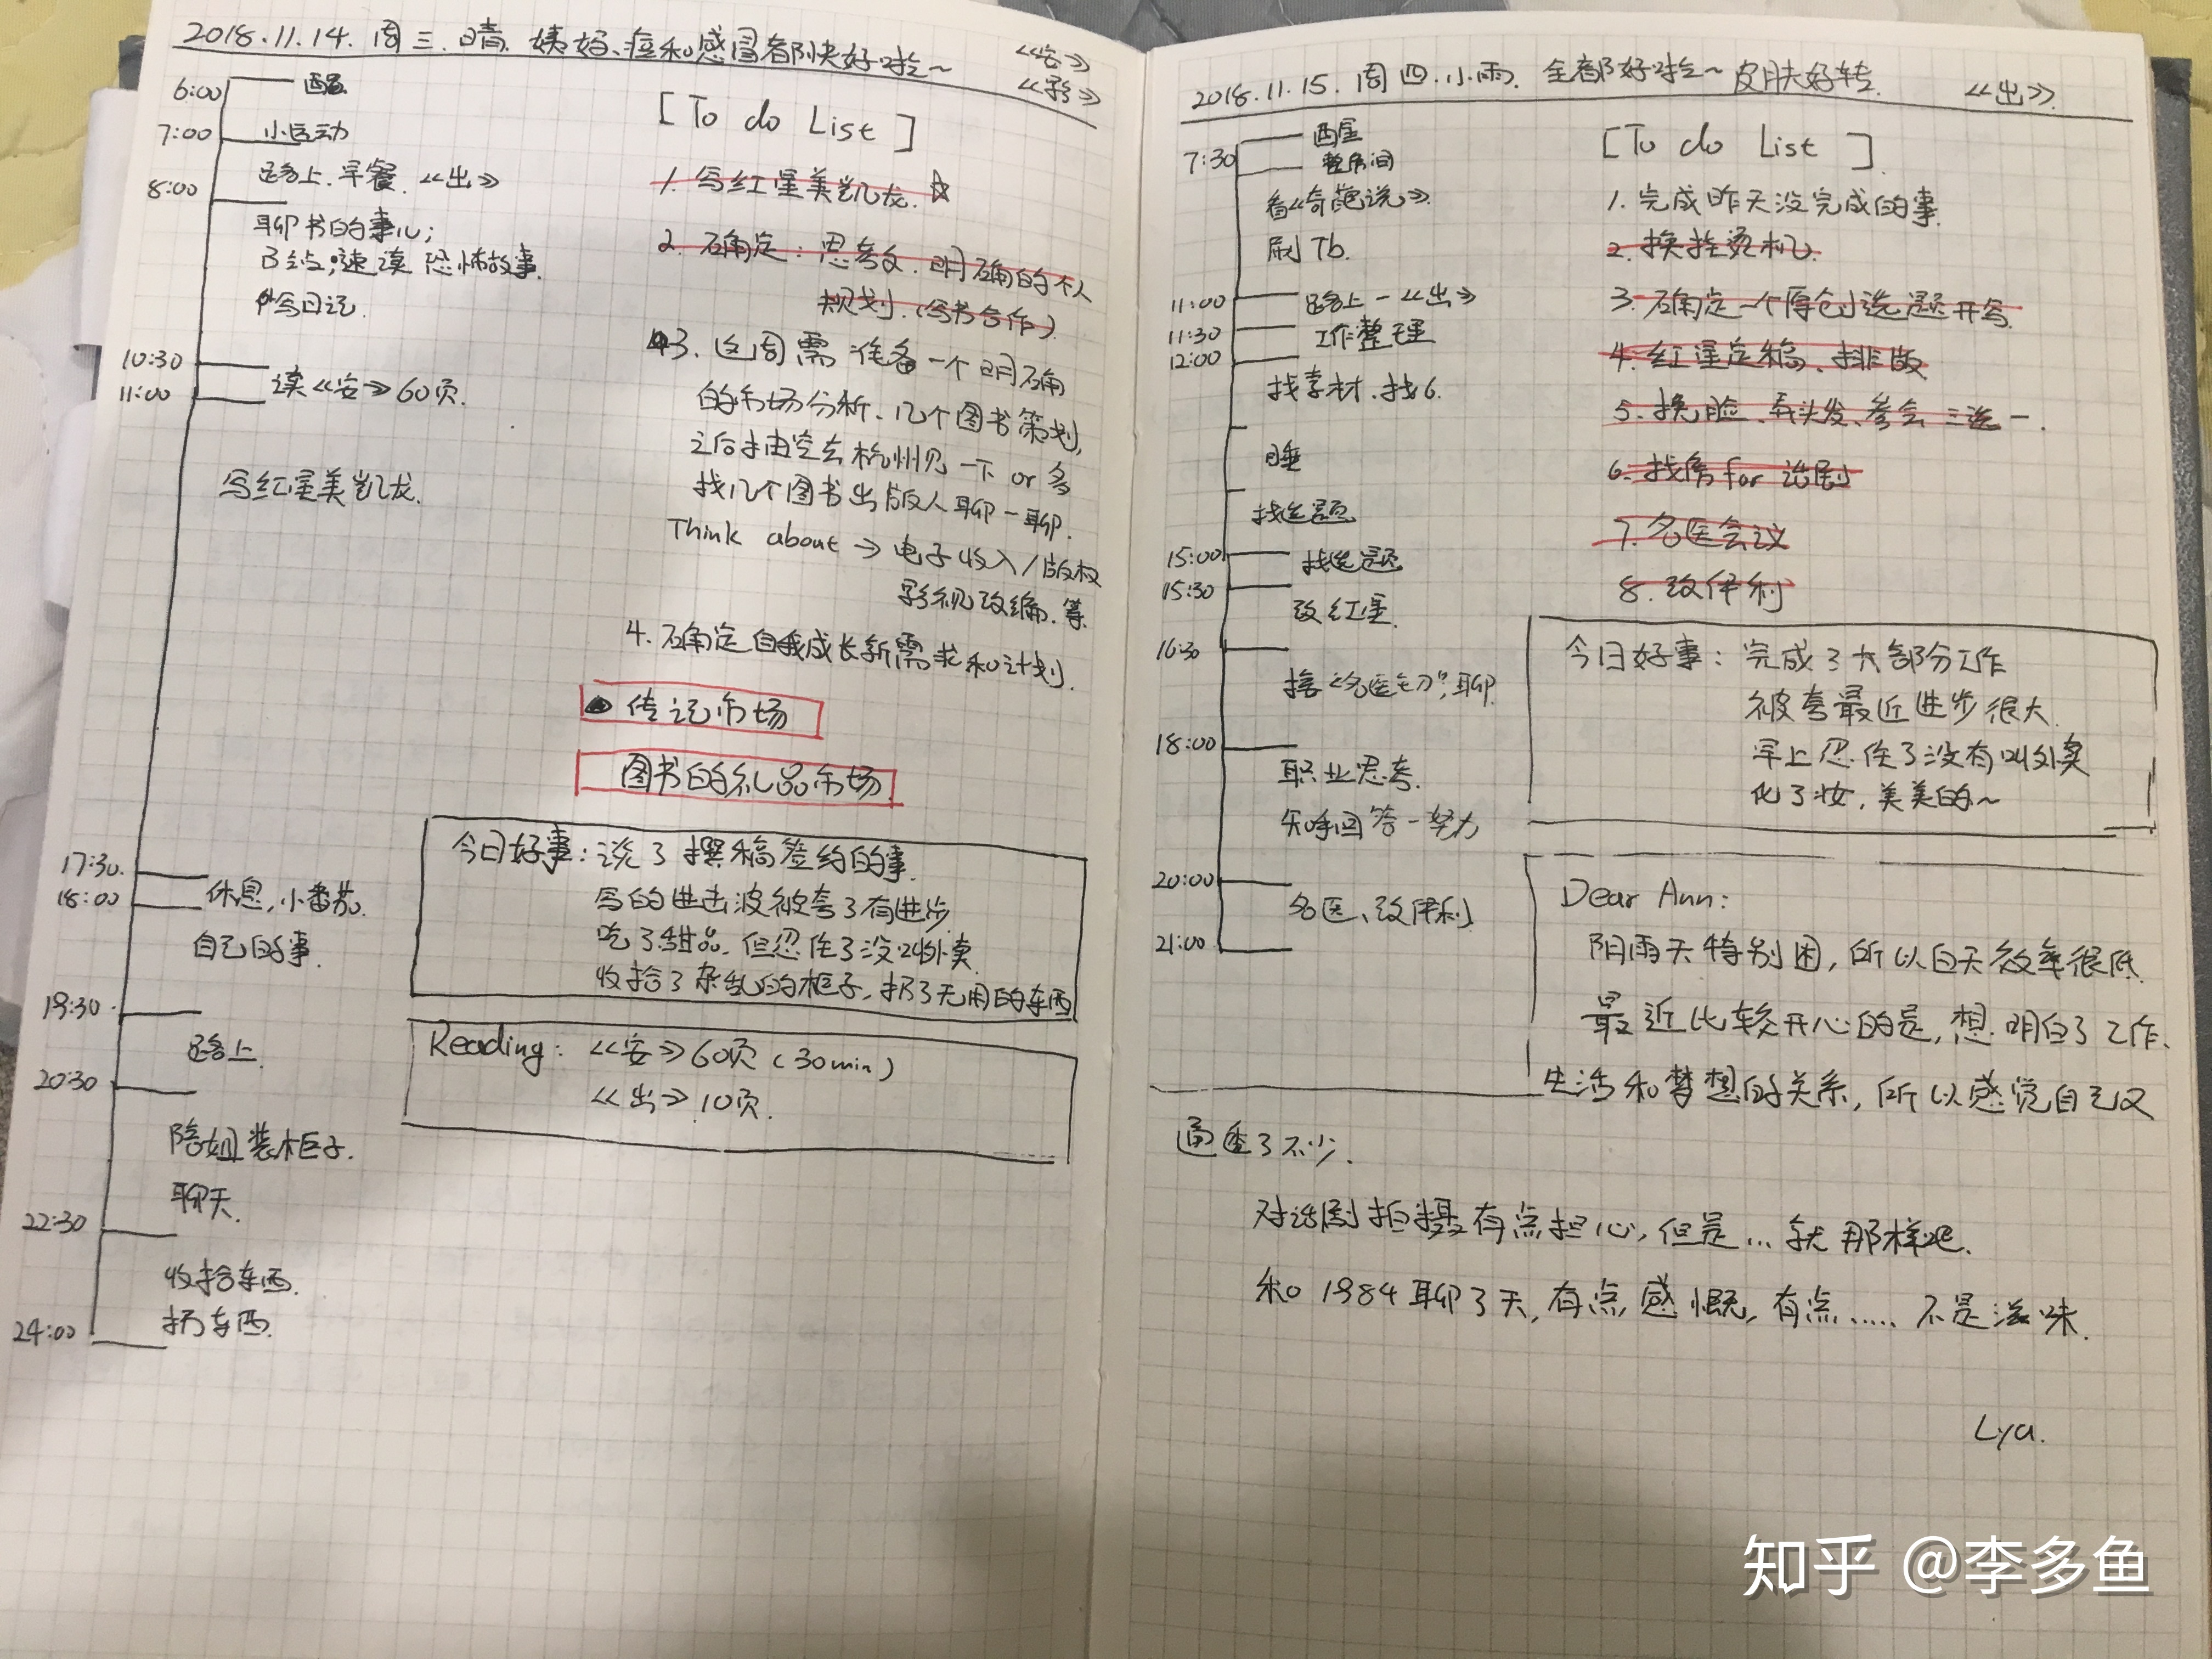 2018.11.14. 周三.晴. 姨妈、痘和感冒都快好啦~
《安》
6:00 醒
7:00 小运动
路上.早餐.《出》
8:00
聊书的事儿;
速读恐怖故事.
写日记.
10:30
11:00 读《安》60页.
写红星美凯龙.
17:30.
18:00 休息,小番茄.
自己的事.
19:30
路上.
20:30
陪姐装柜子.
聊天.
22:30
收拾东西.
扔东西.
24:00
[To do List]
1. 写红星美凯龙. ☆
2. 确定: 思考文. 明确的个人
规划.(写书合作)
3. 这周需准备一个明确
的市场分析、几个图书策划,
之后抽空去杭州见一下 or 多
找几个图书出版人聊一聊.
Think about → 电子收入/版权
影视改编.等.
4. 确定自我成长新需求和计划.
传记市场
图书的礼品市场.
今日好事: 说了撰稿签约的事.
写的进击波被夸了有进步
吃了甜品.但忍住了没叫外卖
收拾了杂乱的柜子,扔了无用的东西
Reading: 《安》60页(30min)
《出》10页.
2018.11.15. 周四.小雨. 全都好啦~ 皮肤好转. 《出》.
醒
7:30 整房间
看《奇葩说》.
刷Tb.
11:00 路上-《出》
11:30 工作整理
12:00
找素材.找6.
睡
找选题
15:00 找选题
15:30
改红星.
16:30
聊
18:00
职业思考.
知乎回答-努力
20:00
名医、改伊利
21:00
[To do List].
1. 完成昨天没完成的事.
2. 换挂烫机.
3. 确定一个原创选题开写.
4. 红星定稿、排版
5. 换脸、弄头发、参会三选一.
6. 找房for话剧
7. 名医会议
8. 改伊利
今日好事: 完成了大部分工作
被夸最近进步很大.
早上忍住了没有叫外卖
化了妆,美美的~
Dear Ann:
阴雨天特别困,所以白天效率很低.
最近比较开心的是,想明白了工作、
生活和梦想的关系,所以感觉自己又
通透了不少.
对话剧拍摄有点担心,但是...就那样吧.
和1984聊了天,有点感慨,有点..... 不是滋味.
Lya.
知乎 @李多鱼